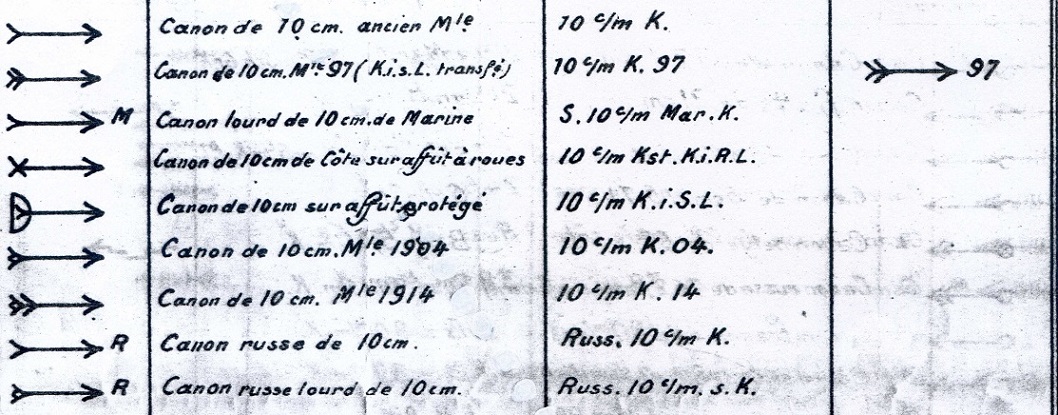 Canon de 10 cm. ancien Mle 10 c/m K.
Canon de 10 cm. Mle 97 (K.i.s.L. transfé) 10 c/m K. 97 97
M Canon lourd de 10 cm. de Marine S. 10 c/m Mar. K.
Canon de 10cm de Côte sur affût à roues 10 c/m Kst. K.i.R.L.
Canon de 10cm sur affût protégé 10 c/m K.i.S.L.
Canon de 10 cm. Mle 1904 10 c/m K. 04.
Canon de 10 cm. Mle 1914 10 c/m K. 14
R Canon russe de 10cm. Russ. 10 c/m K.
R Canon russe lourd de 10cm. Russ. 10 c/m. s. K.